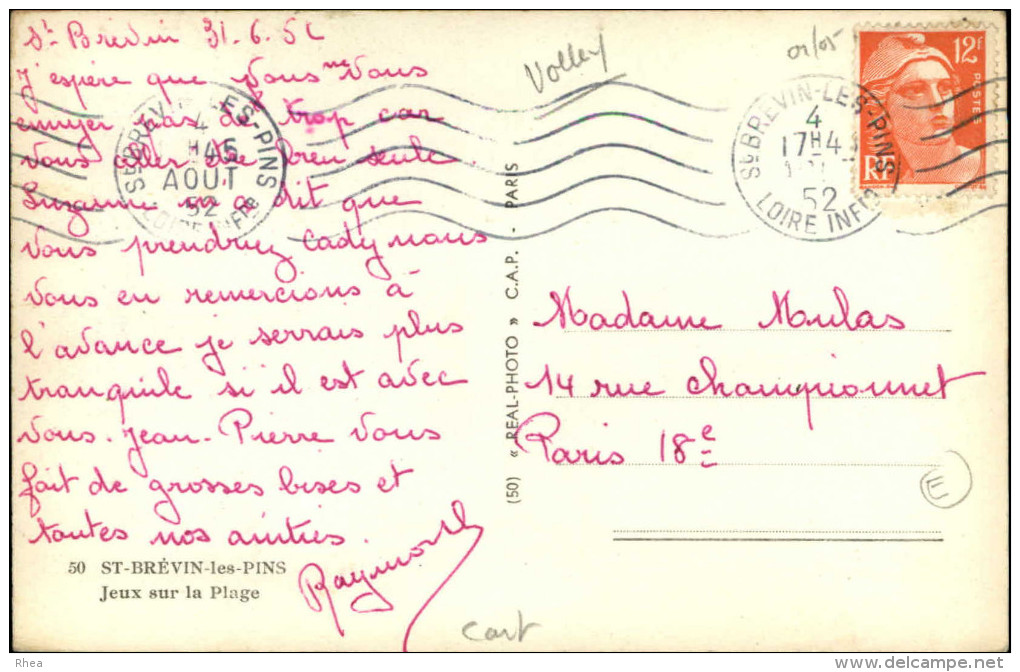 St Brévin 31.6.52
J'espère que vous ne vous
ennuyer pas de trop car
vous aller être bien seule
Suzanne m'a dit que
vous prendriez Cady nous
vous en remercions à
l'avance je serrais plus
tranquile si il est avec
vous. Jean-Pierre vous
fait de grosses bises et
toutes nos amitiés.
Raymonde
50 ST-BRÉVIN-les-PINS
Jeux sur la Plage
Volley
(50) « REAL-PHOTO » C.A.P. - PARIS
ST BREVIN-LES-PINS
4
H45
AOUT
52
LOIRE INFRE
ST BREVIN-LES-PINS
4
17H4
52
LOIRE INFRE
12F
POSTES
RF
Madame Mulas
14 rue Championnet
Paris 18e
E
cart
Rhea
www.delcampe.net